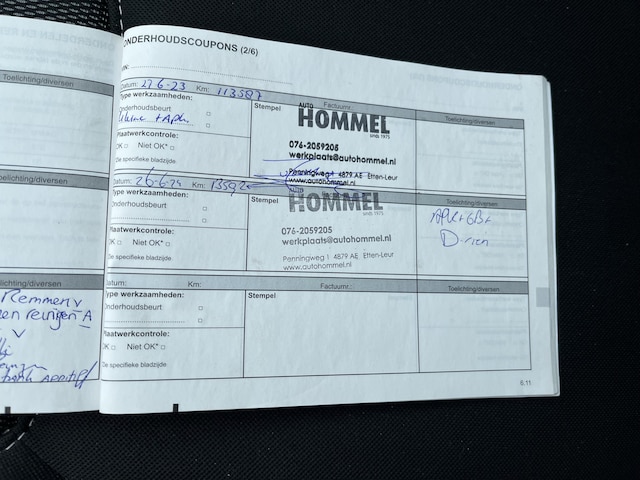 Toelichting/diversen
Toelichting/diversen
Toelichting/diversen
Remmen v
reinigen A
ONDERHOUDSCOUPONS (2/6)
Datum: 27-6-23 Km: 113587
Stempel
Factuurnr.:
Toelichting/diversen
Type werkzaamheden:
Onderhoudsbeurt
Plaatwerkcontrole:
OK Niet OK*
*Zie specifieke bladzijde
AUTO
HOMMEL
sinds 1975
076-2059205
werkplaats@autohommel.nl
Penningweg 1 4879 AE Etten-Leur
www.autohommel.nl
Datum: 26-6-24 Km:
Stempel
Toelichting/diversen
Type werkzaamheden:
Onderhoudsbeurt
Plaatwerkcontrole:
OK Niet OK*
*Zie specifieke bladzijde
HOMMEL
sinds 1975
076-2059205
werkplaats@autohommel.nl
Penningweg 1 4879 AE Etten-Leur
www.autohommel.nl
D-rien
Datum: Km:
Stempel
Factuurnr.:
Toelichting/diversen
Type werkzaamheden:
Onderhoudsbeurt
Plaatwerkcontrole:
OK Niet OK*
*Zie specifieke bladzijde
6.11